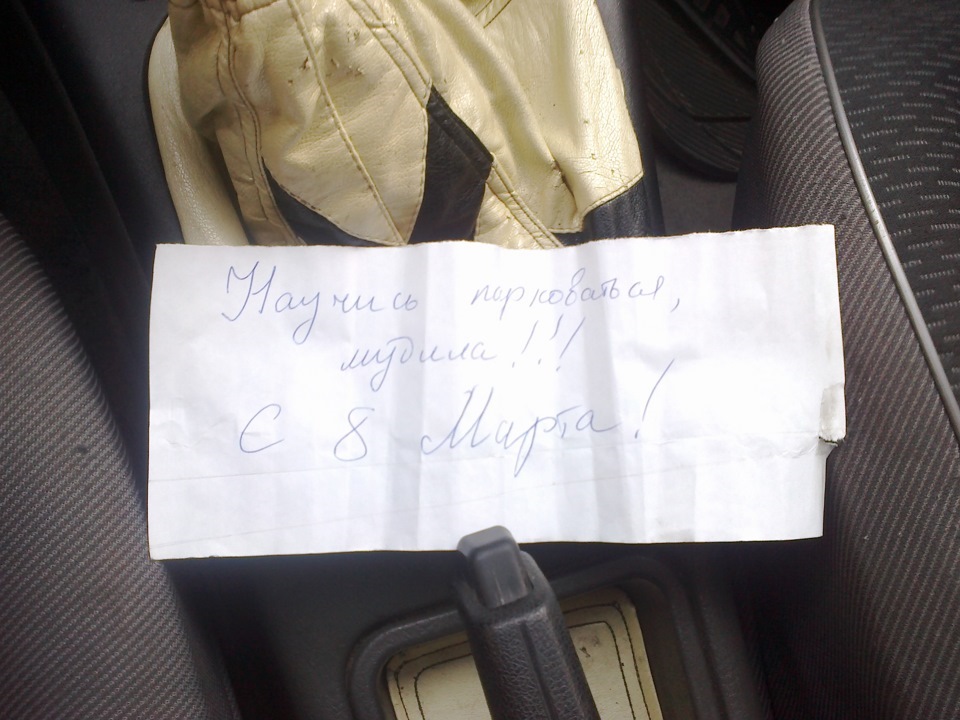 Научись парковаться,
мудила!!!
С 8 Марта!